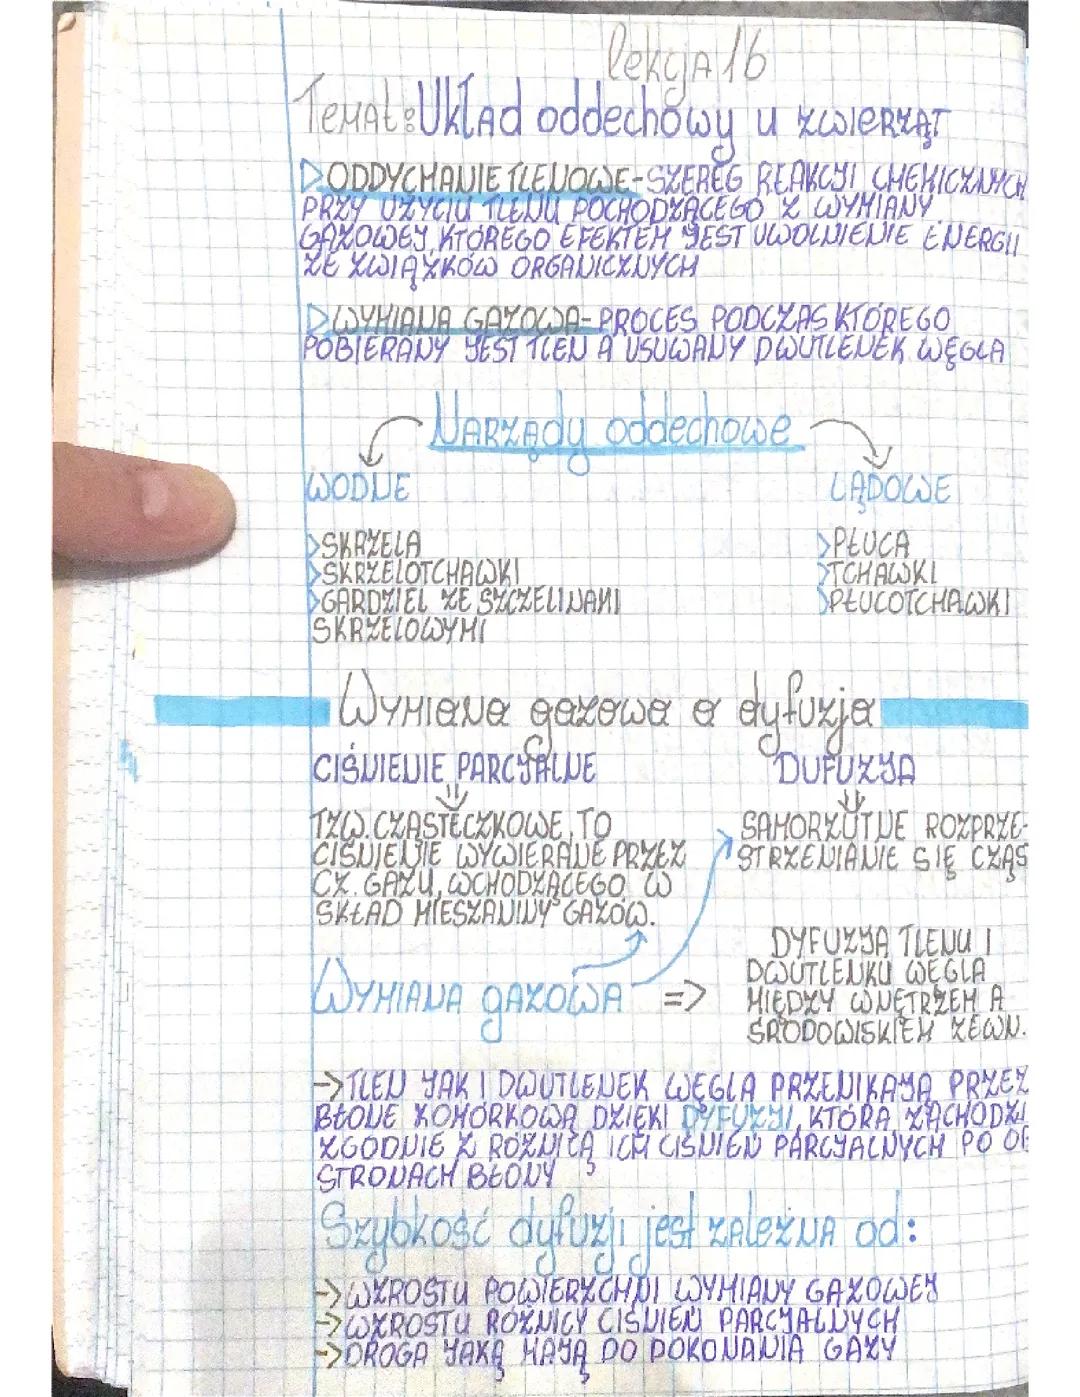 lekcja 16
Temat: Układ oddechowy u zwierząt
ODDYCHANIE TLENOWE - SZEREG REAKCJI CHEMICZNYCH
PRZY UŻYCIU TLENU POCHODZĄCEGO Z WYMIANY
GAZOWEJ, KTÓREGO EFEKTEM JEST UWOLNIENIE ENERGII
ZE ZWIĄZKÓW ORGANICZNYCH
WYMIANA GAZOWA - PROCES PODCZAS KTÓREGO
POBIERANY JEST TLEN A USUWANY DWUTLENEK WĘGLA
Narządy oddechowe
WODNE LĄDOWE
SKRZELA PŁUCA
SKRZELOTCHAWKI TCHAWKI
GARDZIEL ZE SZCZELINAMI PŁUCOTCHAWKI
SKRZELOWYMI
Wymiana gazowa a dyfuzja
CIŚNIENIE PARCJALNE DUFUZJA
TZW. CZĄSTECZKOWE, TO SAMORZUTNE ROZPRZE-
CIŚNIENIE WYWIERANE PRZEZ STRZENIANIE SIĘ CZĄS
CZ. GAZU, WCHODZĄCEGO W
SKŁAD MIESZANINY GAZÓW.
DYFUZJA TLENU I
DWUTLENKU WĘGLA
WYMIANA gAZOWA => MIĘDZY WNĘTRZEM A
ŚRODOWISKIEM ZEWN.
→ TLEN JAK I DWUTLENEK WĘGLA PRZENIKAJĄ PRZEZ
BŁONE KOMÓRKOWĄ DZIĘKI DYFUZJI, KTÓRA ZACHODZI
ZGODNIE Z RÓŻNICĄ ICH CIŚNIEŃ PARCJALNYCH PO OB
STRONACH BŁONY
Szybkość dyfuzji jest zależna od:
→ WZROSTU POWIERZCHNI WYMIANY GAZOWEJ
→ WZROSTU RÓŻNICY CIŚNIEŃ PARCJALNYCH
→ DROGA JAKĄ MAJĄ DO POKONANIA GAZY